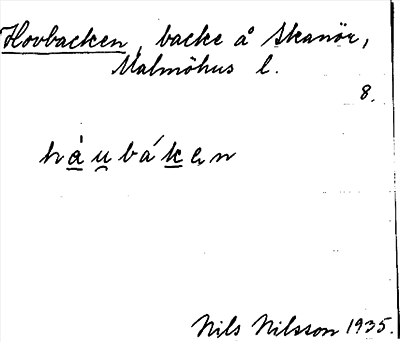 Hovbacken, backe å Skanör,
Malmöhus l.
8.
hа́u̯bákən
Nils Nilsson 1935.